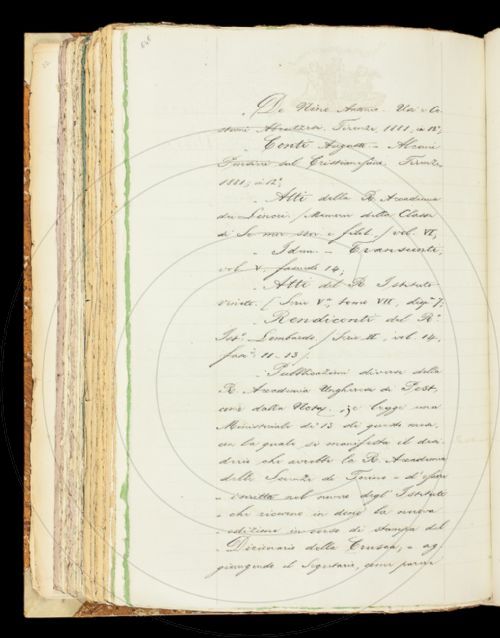 „ De Nino Antonio – Usi e Co-
stumi Abruzzesi. Firenze, 1881, in 12°;
„ Conti Augusto – Alcuni
Pensieri sul Cristianesimo, Firenze
1881, in 12°;
„ Atti della R. Accademia
dei Lincei / Memorie della Classe
di Sc. mor. stor. e filol. / vol. VI,
„ Idem – Transunti,
vol. V, fascicolo 14;
„ Atti del R. Istituto
Veneto. / Serie Vª, tomo VII, disp. 7,
„ Rendiconti del R°
Ist°. Lombardo, / Serie II, vol. 14,
fasc. 11 – 13 /.
„ Pubblicazioni diverse della
R. Accademia Ungherese di Pest,
come dalla Nota. Si legge una
Ministeriale di 13 di questo mese,
con la quale si manifesta il desi-
derio che avrebbe la R. Accademia
delle Scienze di Torino „ d'esser
„ iscritta nel numero degl'Istituti
„ che ricevono in dono la nuova
„ edizione in corso di stampa del
„ Dizionario della Crusca; „ ag-
giungendo il Segretario, come